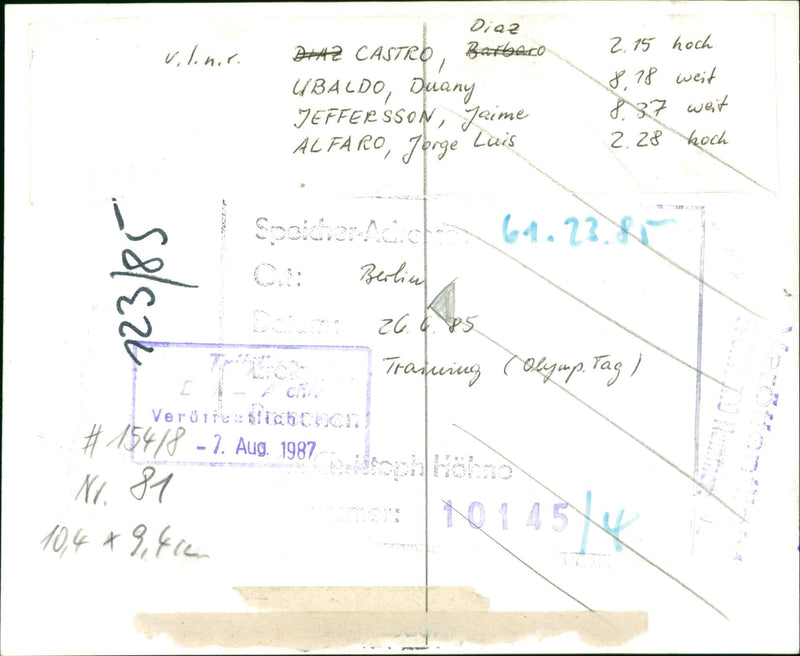 Diaz
v.l.n.r. DIAZ CASTRO, Barbaro 2.15 hoch
UBALDO, Duany 8,18 weit
JEFFERSSON, Jaime 8.37 weit
ALFARO, Jorge Luis 2.28 hoch
123/85
Speicher-Adresse: 61.23.85
Ort: Berlin
Datum: 26.6.85
Training (Olymp. Tag)
Veröffentlicht
- 7. Aug. 1987
Personen:
# 154/8
Christoph Höhne
Nr. 81
10145/4
10,4 x 9,4 cm